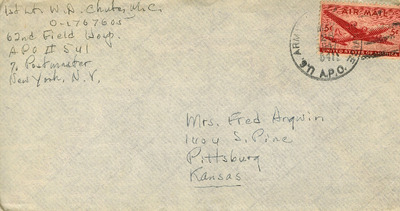 1st Lt. W. D. M.C.
O-1767605
62nd Field Hosp.
A P O # 541
% Postmaster
New York, N.Y.
AIR MAIL
UNITED STATES OF AMERICA
ARMY
A.P.O.
Mrs. Fred Arqwin
1404 S. Pine
Pittsburg
Kansas